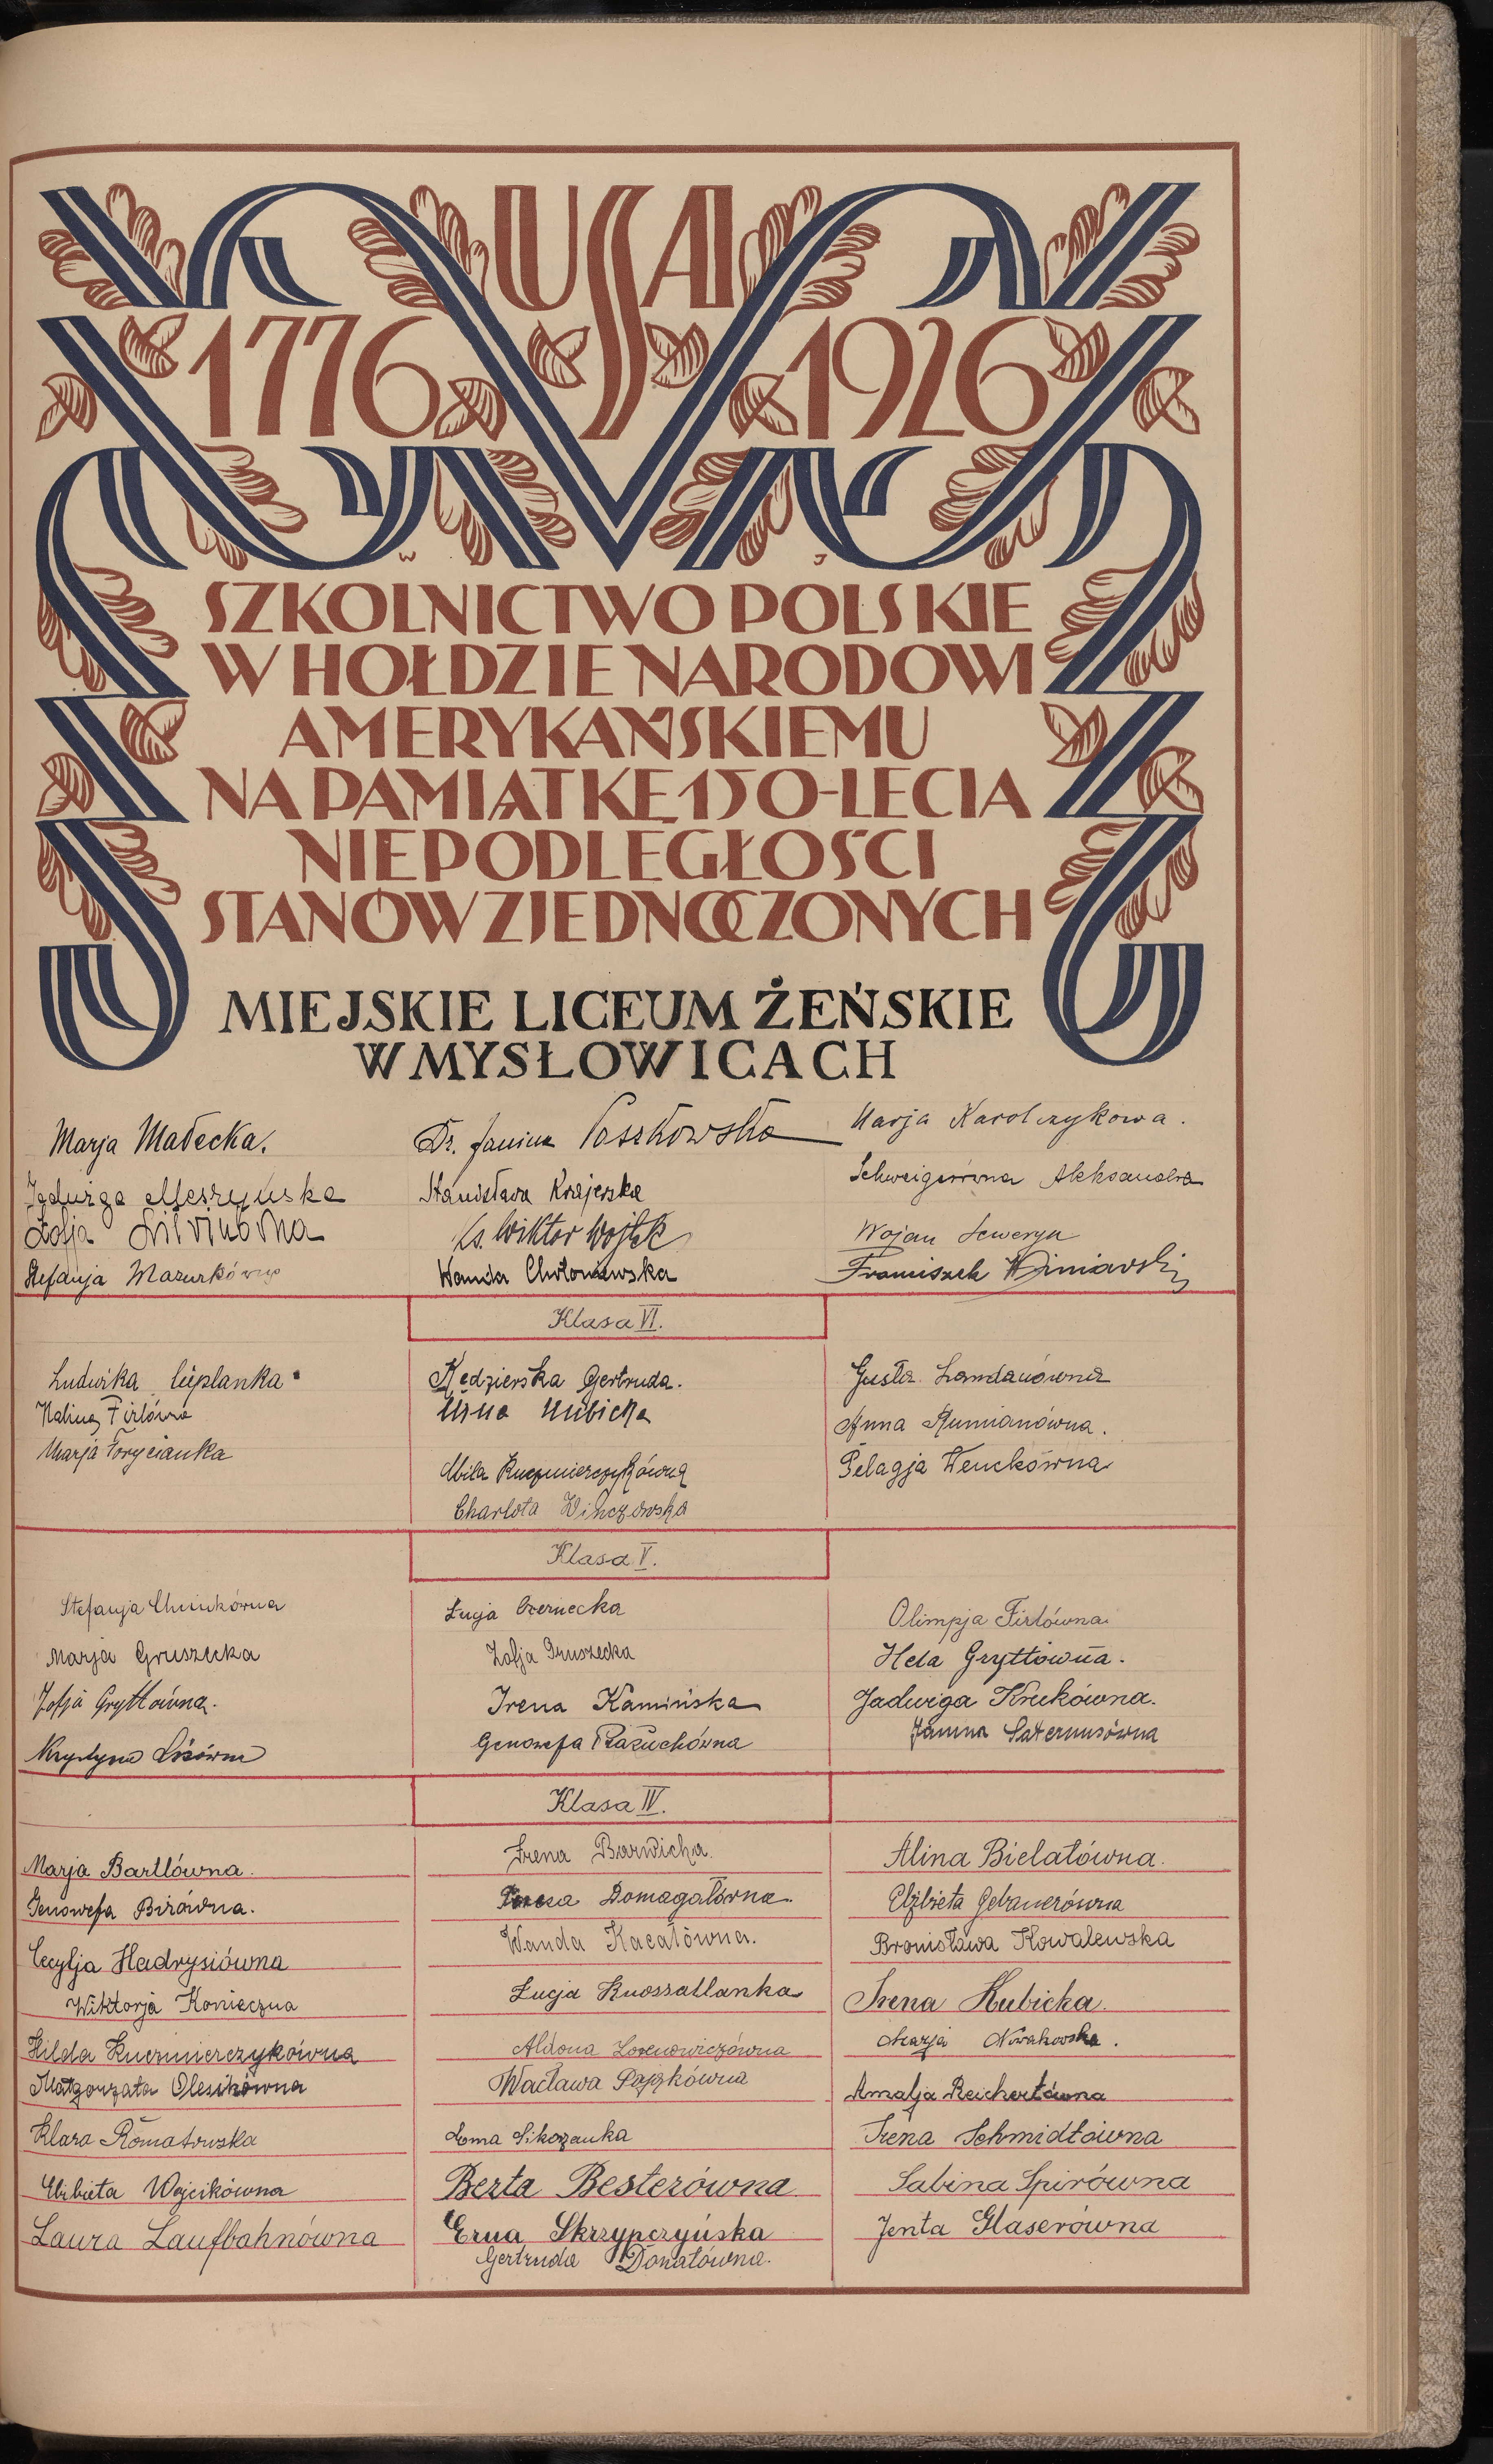 USA
1776 1926
W J
SZKOLNICTWO POLSKIE
W HOŁDZIE NARODOWI
AMERYKAŃSKIEMU
NA PAMIĄTKĘ 150-LECIA
NIEPODLEGŁOŚCI
STANÓW ZJEDNOCZONYCH
MIEJSKIE LICEUM ŻEŃSKIE
W MYSŁOWICACH
Marja Małecka. Dr. Janina Paszkowska Marja Karolczykowa.
Jadwiga Stanisława Krajewska Schweigerówna Aleksandra
Zofja Ks. Wiktor Wojtek Wojan Seweryn
Stefanja Mazurkówna Wanda Franciszek
Klasa VI.
Ludwika Kędzierska Gertruda. Gusta Landauówna
Halina Firlówna Anna Rumianówna.
Marja Mila Kuczmierczykówna Pelagja Wenckówna
Charlota
Klasa V.
Stefanja Łucja Czernecka Olimpja Firlówna
Marja Gruszecka Zofja Gruszecka Hela Gryttówna.
Zofja Gryttówna. Irena Kamińska Jadwiga Krukówna.
Krystyna Genowefa Janina Saternusówna
Klasa IV.
Marja Bartlówna. Irena Barwicka. Alina Bielatówna.
Genowefa Birówna. Domagałówna. Elżbieta Gebauerówna
Cecylja Hadrysiówna Wanda Kacałówna. Bronisława Kowalewska
Wiktorja Konieczna Łucja Knossallanka Irena Kubicka.
Hilda Kuczmierczykówna Aldona Marja Nowakowska.
Małgorzata Olesikówna Wacława Pająkówna Amalja Reichertówna
Klara Romatowska Sikozanka Irena Schmidtówna
Elżbieta Wojcikówna Berta Besterówna Sabina Spirówna
Laura Laufbahnówna Erna Skrzypczyńska Jenta Glaserówna
Gertruda Donatówna.